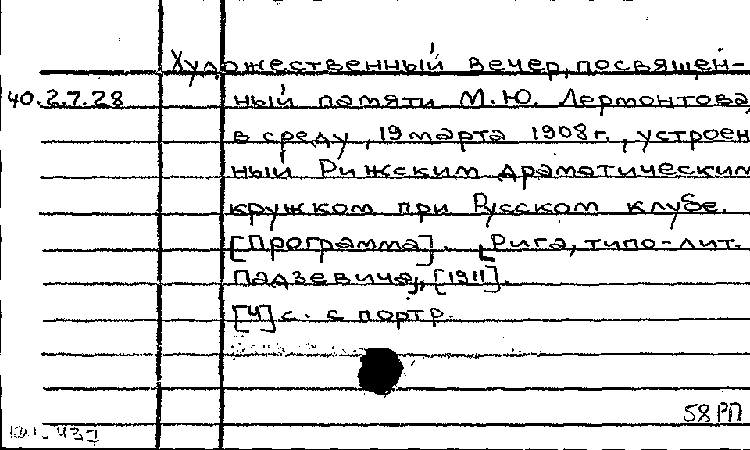 Художественный вечер, посвящен-
40.2.7.28 ный памяти М.Ю. Лермонтова,
в среду, 19 марта 1908 г., устроен
ный Рижским драматическим
кружком при Русском клубе.
[Программа]. [Рига, типо-лит.
Падзевича, [1911].
[4] с. с портр.
58 РП